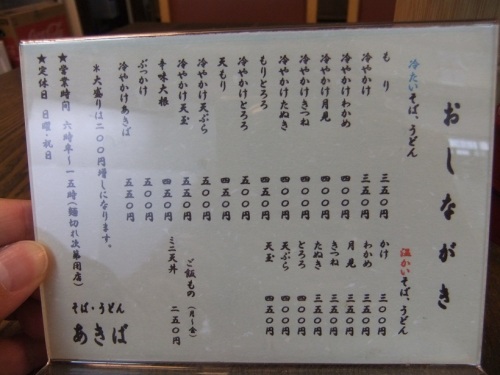 おしながき
冷たいそば、うどん
もり 三五〇円
冷やかけ 三五〇円
冷やかけわかめ 四〇〇円
冷やかけ月見 四〇〇円
冷やかけきつね 四〇〇円
冷やかけたぬき 四〇〇円
もりとろろ 四〇〇円
冷やかけとろろ 五〇〇円
天もり 四五〇円
冷やかけ天ぷら 五〇〇円
冷やかけ天玉 五五〇円
辛味大根 四五〇円
ぶっかけ 五〇〇円
冷やかけあきば 五五〇円
温かいそば、うどん
かけ 三〇〇円
わかめ 三五〇円
月見 三五〇円
きつね 三五〇円
たぬき 三五〇円
とろろ 四〇〇円
天ぷら 四〇〇円
天玉 四五〇円
ご飯もの（月～金）
ミニ天丼 二五〇円
※大盛りは二〇〇円増しになります。
★営業時間 六時半～一五時（麺切れ次第閉店）
★定休日 日曜・祝日
そば・うどん
あきば